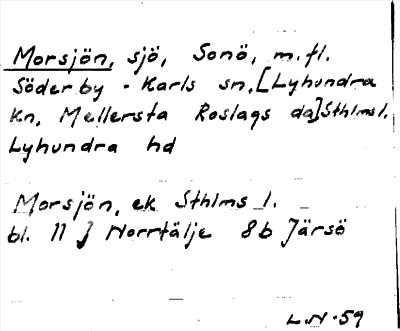 Morsjön, sjö, Sonö, m.fl.
Söderby-Karls sn, [Lyhundra
kn, Mellersta Roslags do] Sthlms l.
Lyhundra hd
Morsjön, ek Sthlms l.
bl. 11 J Norrtälje 8b Järsö
L.N.59